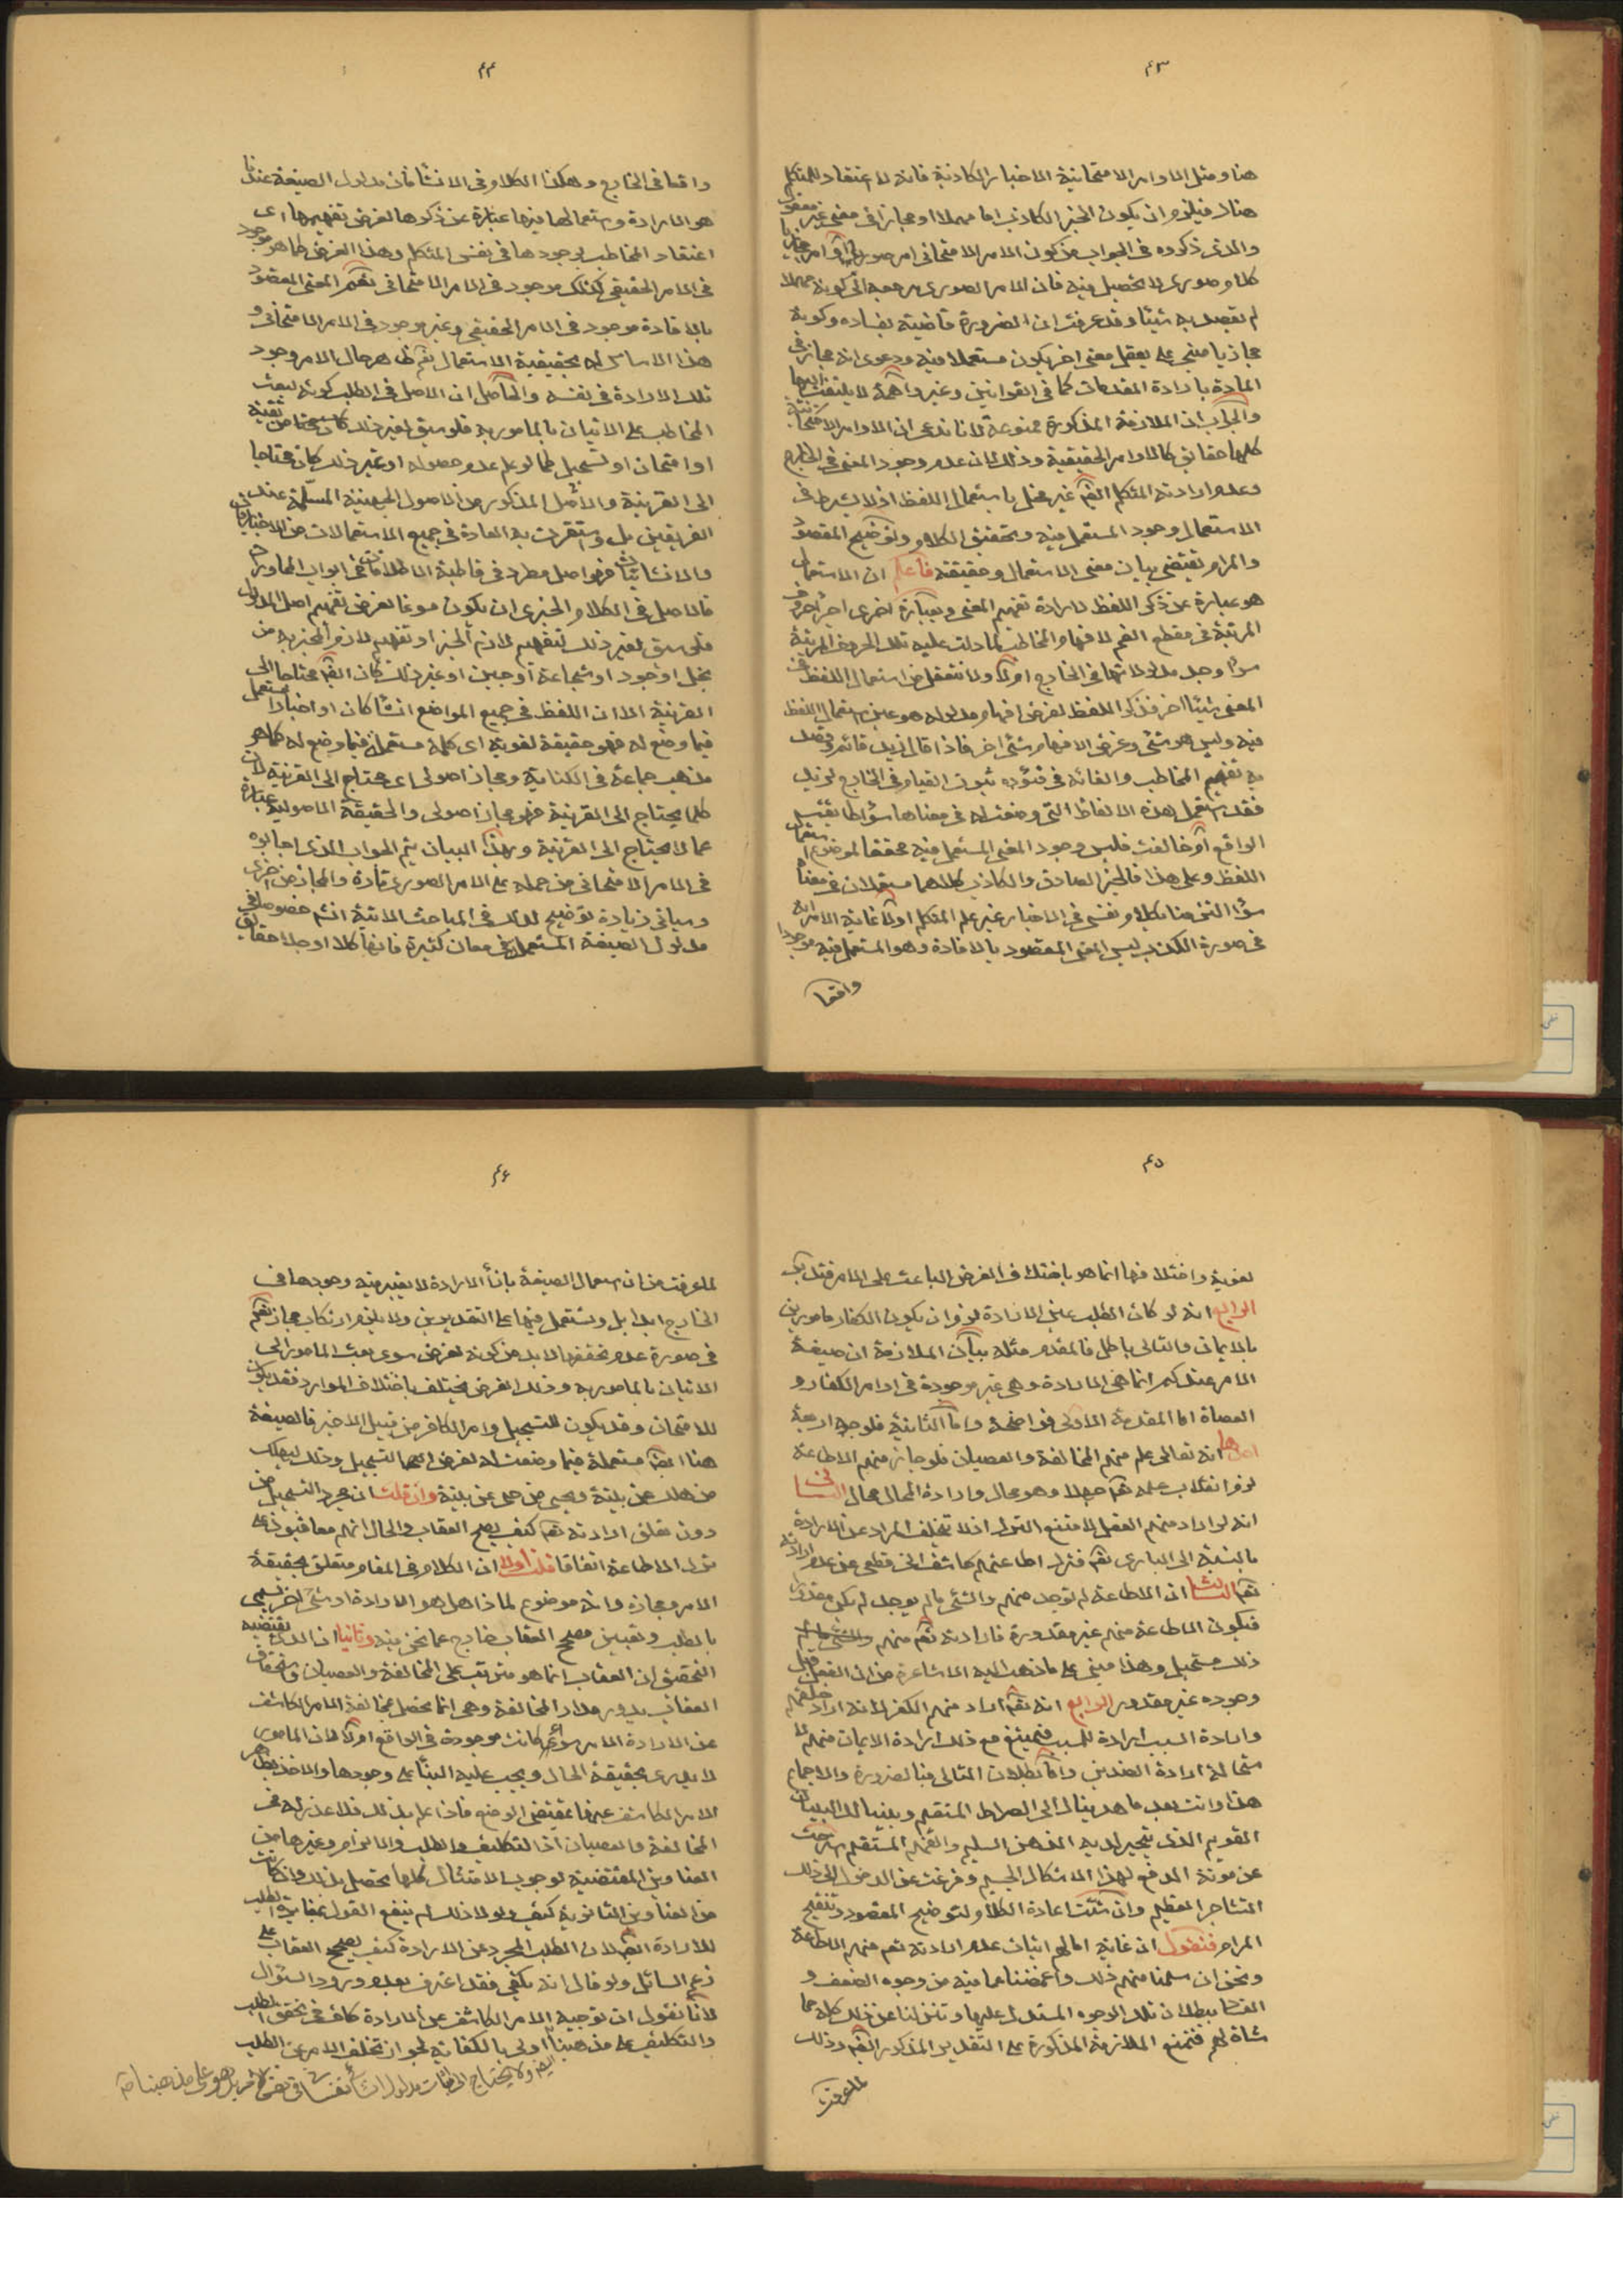 ٤٣
هنا ومثل الاوامر الامتحانية الاخبار الكاذبة فانه لا اعتقاد للمتكلم
هناك فيلزم ان يكون الخبر الكاذب اما مهملا او مجازا فى معنى غير معقول
والذى ذكروه فى الجواب من كون الامر الامتحانى امر صورى او امر مجازيا
كلام صورى لا تحصيل فيه فان الامر الصورى مرجعه الى كونه مهملا
لم يقصد به شيئا وقد عرفت ان الضرورة قاضية بفساده وكونه
مجازيا مبنى على تعقل معنى اخر يكون مستعملا فيه ودعوى انه مجاز فى
المادة بارادة المقدمات كما فى القوانين وغيره واهمة لا يلتفت اليها
والجواب ان الملازمة المذكورة ممنوعة لانا ندعى ان الاوامر الامتحانية
كلها حقائق كالاوامر الحقيقية وذلك لان عدم وجود المعنى فى الخارج
وعدم ارادته المتكلم ايضا غير مخل باستعمال اللفظ اذ لا يشترط فى
الاستعمال وجود المستعمل فيه وتحقيق الكلام وتوضيح المقصود
والمرام يقتضى بيان معنى الاستعمال وحقيقته فاعلم ان الاستعمال
هو عبارة عن ذكر اللفظ لارادة تفهيم المعنى وبعبارة اخرى اخراج الحروف
المرتبة فى مقطع الفم لافهام المخاطب لما دلت عليه تلك الحروف المرتبة
سواء وجد مدلولاتها فى الخارج اولا ولا نتعقل من استعمال اللفظ فى
المعنى شيئا اخر فذكر اللفظ لغرض افهام مدلوله هو عين استعمال اللفظ
فيه وليس هو شئ وغرض الافهام شئ اخر فاذا قال زيد قائم وقصد
به تفهيم المخاطب والقائه فى فؤده ثبوت القيام فى الخارج لزيد
فقد استعمل هذه الالفاظ التى وضعت له فى معناها سواء طابقت
الواقع او خالفت فليس وجود المعنى المستعمل فيه محققا لموضوع استعمال
اللفظ وعلى هذا فالخبر الصادق والكاذب كلاهما مستعملان فى معناه
سواء التزمنا بكلام نفسى فى الاخبار غير علم المتكلم اولا غاية الامر انه
فى صورة الكذب ليس المعنى المقصود بالافادة وهو المستعمل فيه موجودا
واقعا
٤٤
واقعا فى الخارج وهكذا الكلام فى الانشا فان مدلول الصيغة عندنا
هو الارادة واستعمالها فيها عبارة عن ذكرها لغرض تفهيمها اى
اعتقاد المخاطب لوجودها فى نفس المتكلم وهذا الغرض كما هو موجود
فى الامر الحقيقى كذلك موجود فى الامر الامتحانى نعم المعنى المقصود
بالافادة موجود فى الامر الحقيقى وغير موجود فى الامر الامتحانى و
هذا الاساس له بحقيقية الاستعمال نعم ظاهر حال الامر وجود
تلك الارادة فى نفسه والحاصل ان الاصل فى الطلب كونه لبعث
المخاطب على الاتيان بالمامور به فلو سيق لغير ذلك كاستهزاء من تقية
او امتحان او تسجيل كما لو علم عدم حصوله او غير ذلك كان محتاجا
الى القرينة والاصل المذكور من الاصول الجهتية المسلمة عند
الفريقين بل واستقرت به العادة فى جميع الاستعمالات من الاخباريات
والانشائيات فهو اصل مطرد فى قاطبة الاطلاقات فى ابواب المحاورات
فالاصل فى الكلام الخبرى ان يكون مسوغا لغرض تفهيم اصل المدلول
فلو سيق لغير ذلك لتفهيم لازم الخبر او تفهيم لازم المخبر به من
بخل او جود او شجاعة او جبن او غير ذلك كان ايضا محتاجا الى
القرينة الا ان اللفظ فى جميع المواضع انشاء كان او اخبارا مستعمل
فيما وضع له فهو حقيقة لغوية اى كلمة مستعملة فيما وضع له كما هو
مذهب جماعة فى الكناية ومجاز اصولى اى محتاج الى القرينة لان
كلما يحتاج الى القرينة فهو مجاز اصولى والحقيقة الاصولية عبارة
عما لا يحتاج الى القرينة وبهذا البيان يتم الجواب الذى اجابوه
فى الامر الامتحانى من حمله على الامر الصورى تارة والمجاز من اخرى
وسياتى زيادة توضيح لذلك فى المباحث الاتية انش خصوصا فى
مدلول الصيغة المستعملة فى معان كثيرة فانها كلا او جلا حقايق
٤٥
لغوية واختلافها انما هو باختلاف الغرض الباعث على الامر فتدبر
الرابع انه لو كان الطلب عين الارادة لزم ان يكون الكفار مامورين
بالايمان والتالى باطل فالمقدم مثله بيان الملازمة ان صيغة
الامر عندكم انما هى الارادة وهى غير موجودة فى اوامر الكفار و
العصاة اما المقدمة الاولى فواضحة واما الثانية فلوجوه اربعة
احدها انه تعالى علم منهم المخالفة والعصيان فلو جاز منهم الاطاعة
لزم انقلاب علمه تعالى جهلا وهو محال وارادة المحال محال الثانى
انه لو اراد منهم الفعل لامتنع الترك اذ لا يتخلف المراد عن الارادة
بالنسبة الى البارى تعالى فترك اطاعتهم كاشف انى قطعى عن عدم ارادته
تعالى الثالث ان الاطاعة لم توجد منهم والشئ ما لم يوجد لم يكن مقدورا
فيكون الاطاعة منهم غير مقدورة فارادته تعالى منهم
ذلك مستحيل وهذا مبنى على ما ذهب اليه الاشاعرة من ان الفعل قبل
وجوده غير مقدور الرابع انه تعالى اراد منهم الكفر لانه اراد خلقهم
وارادة السبب ارادة للمسبب فيمتنع مع ذلك ارادة الايمان منهم لا
ستحالة ارادة الضدين واما بطلان التالى فبالضرورة والاجماع
هذا وانت بعد ما هديناك الى الصراط المستقيم وبيننا لك البيان
القويم الذى يتحير لديه الذهن السليم والفهم المستقيم استرحت
عن مونة الدفع لهذا الاشكال الجسيم وفرغت عن الدخول الى ذلك
التشاجر العظيم وان شئت اعادة الكلام لتوضيح المقصود وتنقيح
المرام فنقول ان غاية امالهم اثبات عدم ارادته تعم منهم الاطاعة
ونحن ان سلمنا منهم ذلك واغمضنا عما فيه من وجوه الضعف و
القضا ببطلان تلك الوجوه المستدل عليها وتنزلنا عن ذلك كله مما
شاة لهم فنمنع الملازمة المذكورة على التقدير المذكور ايضا وذلك
لما عرفت
٤٦
لما عرفت من ان استعمال الصيغة بازاء الارادة لا يعتبر فيه وجودها فى
الخارج ابدا بل وتستعمل فيها على التقديرين ولا يلزم ارتكاب مجاز نعم
فى صورة عدم تحققها لابد من كونه لغرض سوى بعث المامور الى
الاتيان بالمامور به وذلك الغرض يختلف باختلاف الموارد فقد يكون
للامتحان وقد يكون للتسجيل وامر الكافر من قبيل الاخير فالصيغة
هنا ايضا مستعملة فيما وضعت له لغرض التسجيل وذلك ليهلك
من هلك عن بينة ويحيى من حى عن بينة وان قلت ان مجرد التسجيل من
دون تعلق ارادته تعالى كيف يصح العقاب والحال انهم معاقبون على
ترك الاطاعة اتفاقا قلت اولا ان الكلام فى المقام متعلق بحقيقة
الامر ومجازه وانه موضوع لماذا هل هو الارادة او شئ اخر يسمى
بالطلب وتعيين مصحح العقاب خارج عما نحن فيه وثانيا ان الذى يقتضيه
التحقيق ان العقاب انما هو مترتب على المخالفة والعصيان واستحقاق
العقاب يدور مدار المخالفة وهى انما تحصل بمخالفة الامر الكاشف
عن الارادة الامر سواء كانت موجودة فى الواقع اولا لان المامور
لا يدرى بحقيقة الحال ويجب عليه البناء على وجودها والاخذ بظاهر
الامر الكاشف عنها بمقتضى الوضع فاذا علم بذلك فلا عذر له فى
المخالفة والعصيان اذ التكليف والطلب والالزام وغيرها من
العناوين المقتضية لوجوب الامتثال كلها تحصل بذلك وان كانت
من العناوين الثانوية كيف ولولا ذلك لم ينفع القول بمغايرة الطلب
للارادة ايضا لان الطلب المجرد عن الارادة كيف يصحح العقاب على
زعم السائل ولو قال انه يكفى فقد اعترف بعدم ورود السئوال
لانا نقول ان توجيه الامر الكاشف عن الارادة كاف فى تحقق الطلب
والتكليف على مذهبنا اولى بالكفاية لجواز تخلف الامر عن الطلب
ايضا ولا يحتاج الى اثبات مدلول